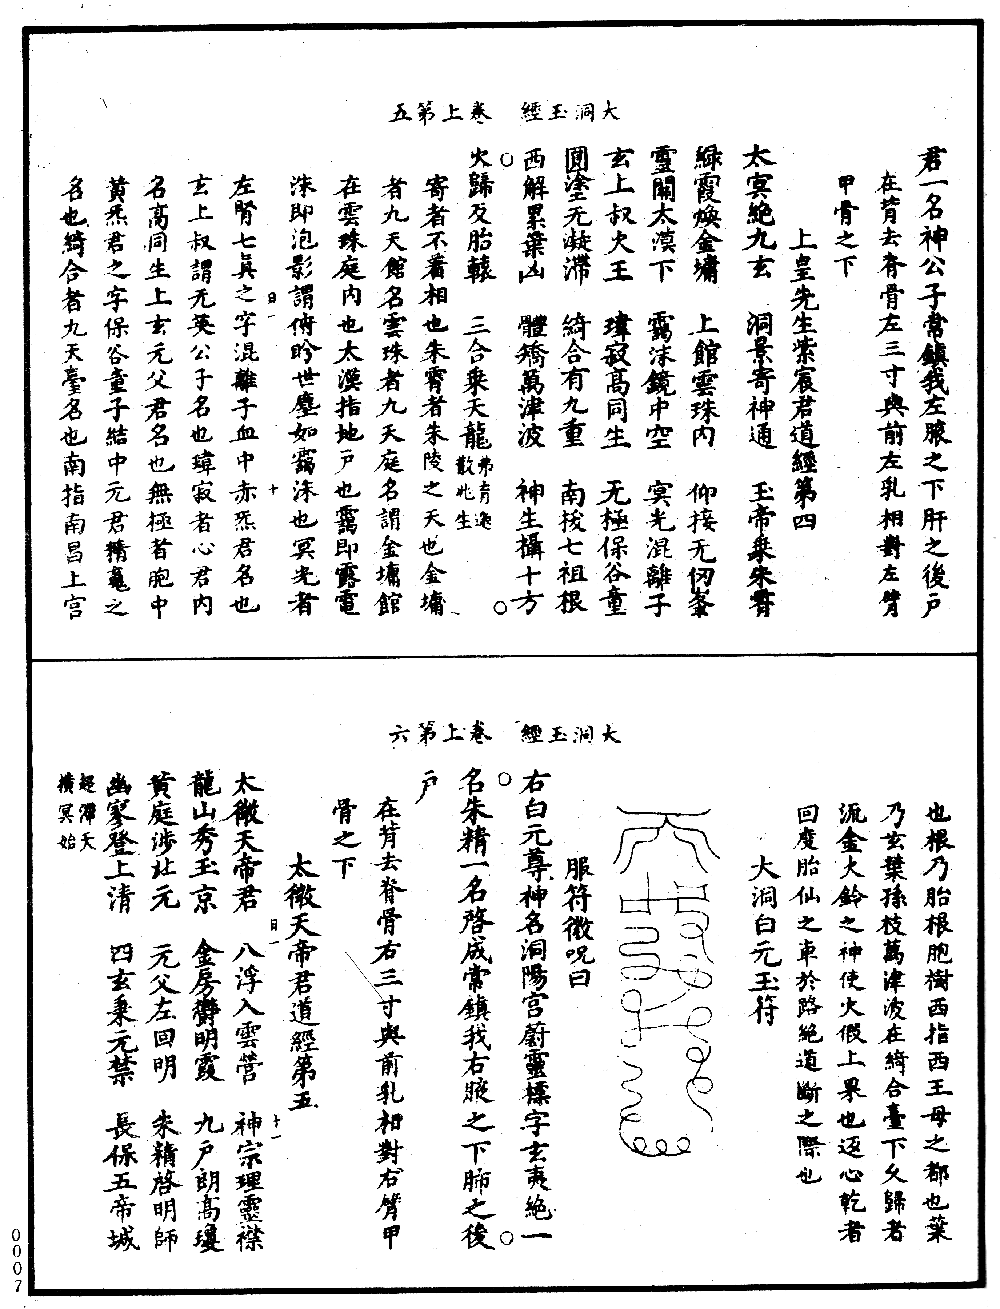 大洞玉經　卷上第五
君一名神公子常鎮我左腋之下肝之後戶
在背去脊骨左三寸與前左乳相對左臂
甲骨之下
上皇先生紫宸君道經第四
太冥絶九玄　洞景寄神通　玉帝乘朱霄
綠霞煥金墉　上館雲珠內　仰接无刃峯
靈關太漠下　靄沫鏡中空　冥光混離子
玄上叔火王　瑋寂高同生　无極保谷童
圓塗无凝滯　綺合有九重　南拔七祖根
西解累葉凶　體矯萬津波　神生攝十方
火歸反胎轅　三合乘天龍
寄者不著相也朱霄者朱陵之天也金墉
者九天館名雲珠者九天庭名謂金墉館
在雲珠庭內也太漠指地戶也靄即露電
沫即泡影謂俯昤世塵如靄沫也冥光者
日一
十
左腎七眞之字混離子血中赤炁君名也
玄上叔謂无英公子名也瑋寂者心君內
名高同生上玄元父君名也無極者胞中
黃炁君之字保谷童子結中元君精竟之
名也綺合者九天臺名也南指南昌上宮
大洞玉經　卷上第六
也根乃胎根胞樹西指西王母之都也葉
乃玄葉孫枝萬津波在綺合臺下火歸者
流金火鈴之神使火假上果也逐心乾者
回度胎仙之車於路絶道斷之際也
大洞白元玉符
服符徵呪曰
右白元尊神名洞陽宮蔚靈標字玄夷絶一
名朱精一名啓成常鎮我右腋之下肺之後
戶
在背去脊骨右三寸與前乳相對右臂甲
骨之下
太微天帝君道經第五
太微天帝君　八浮入雲營　神宗理靈襟
日一
十一
龍山秀玉京　金房鬱明霞　九戶朗高瓊
黃庭涉北元　元父左回明　朱精啓明師
幽寥登上清　四玄乘元禁　長保五帝城
0007